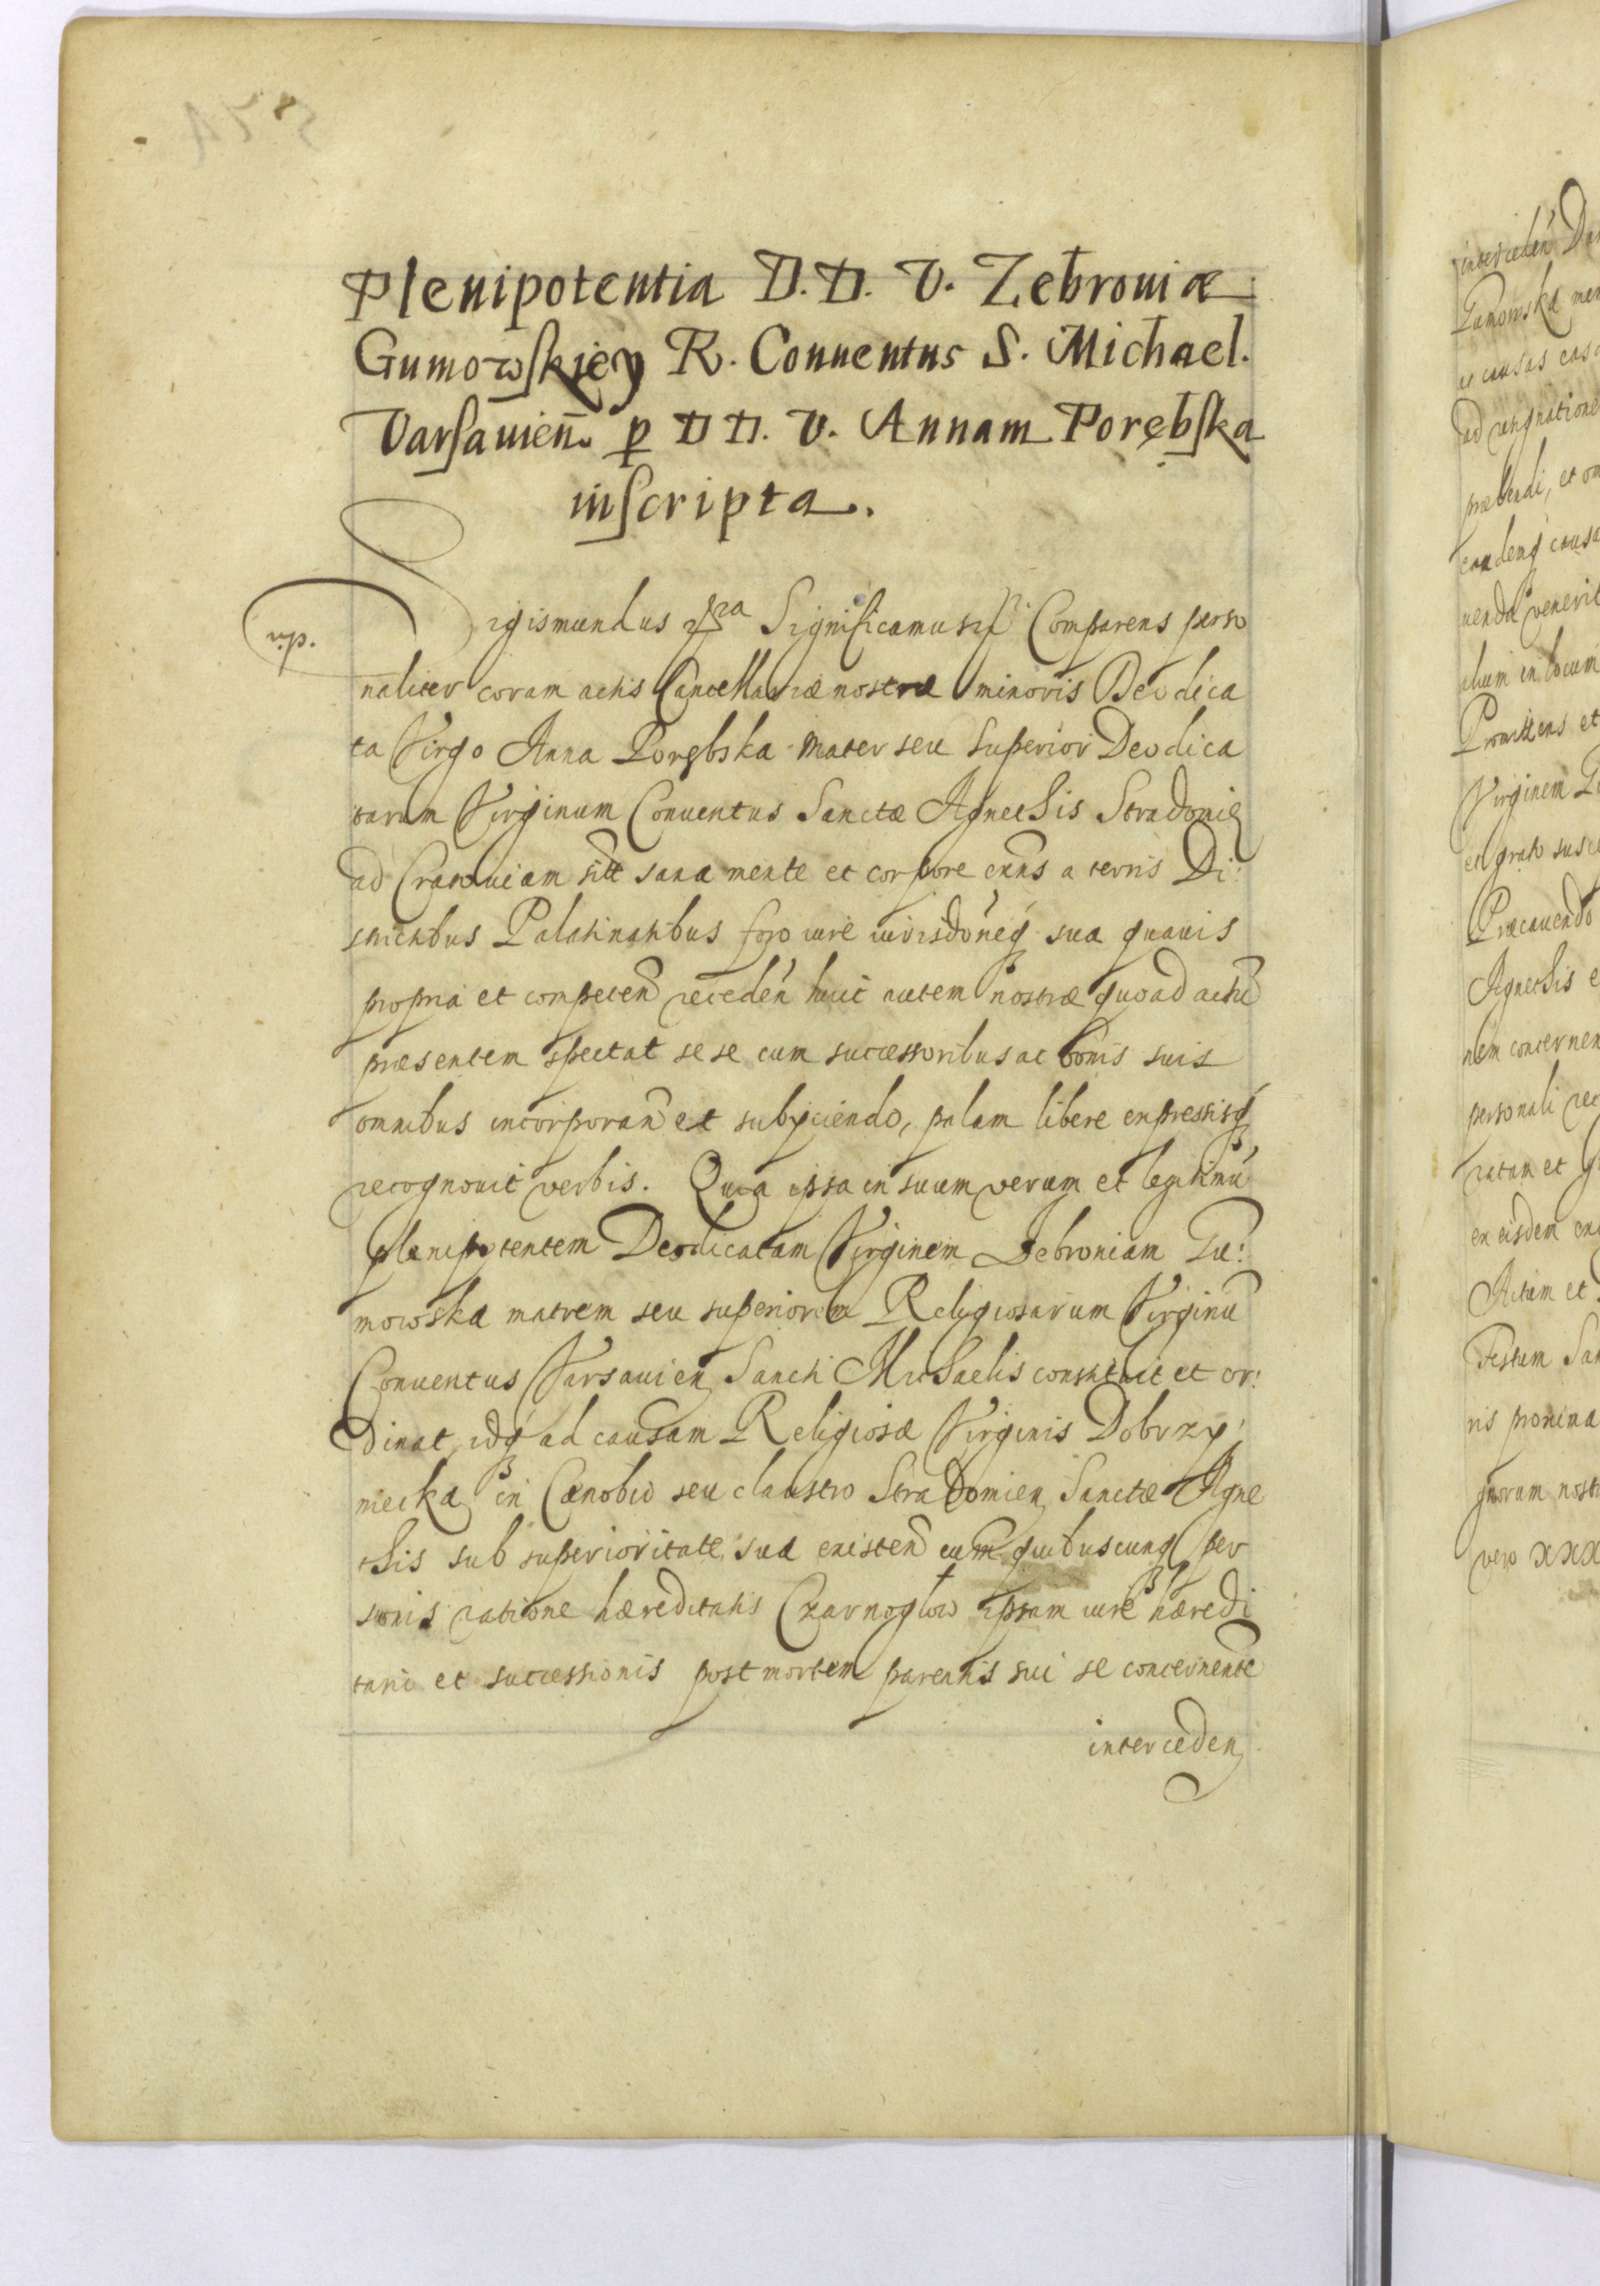 Plenipotentia D. D. V. Zebroniæ
Gumowskiey R. Conuentus S. Michael.
Varsauien. p D D. V. Annam Porębska
inscripta.
n.p.
Sigismundus 3ra Significamus Comparens perso
naliter coram actis Cancellariæ nostræ minoris Deodica
ta Virgo Anna Porębska mater seu superior Deodica
tarum Virginum Conuentus Sanctæ Agnethis Stradomię
ad Cracouiam sitt sana mente et corpore enns a terris Di:
strictibus Palatinatibus foro iure iurisdoneq sua quauis
propria et competen receden huic autem nostræ quoad actu
præsentem spectat sese cum successoribus ac bonis suis
omnibus incorporan et subyciendo, palam libere expressisq
recognouit verbis. Quia ipsa in suum verum et legitimu
plenipotentem Deodicatam Virginem Zebroniam Gu:
mowska matrem seu superiorem Religiosarum Virginu
Conuentus Varsauien Sancti Michaelis constituit et or:
dinat, idq ad causam Religiosæ Virginis Dobrzy
niecka in Cænobio seu claustro Stradomien Sanctæ Agne
this sub superioritate sua existen cum quibuscunq per
sonis ratione hæreditatis Czarnoglow ipsam iure hæredi
tario et successionis post mortem parentis sui se concernente
interceden
interceden
Gumowska
ac causas
præbendi, et
eandemq causa
uenda venerit
alium in locum
Promittens et
Virginem
et grato
Præcauendo
Agnethis
nem concernen
personali
ratam et
Actum et
Festum
ris proxima
vero XXX